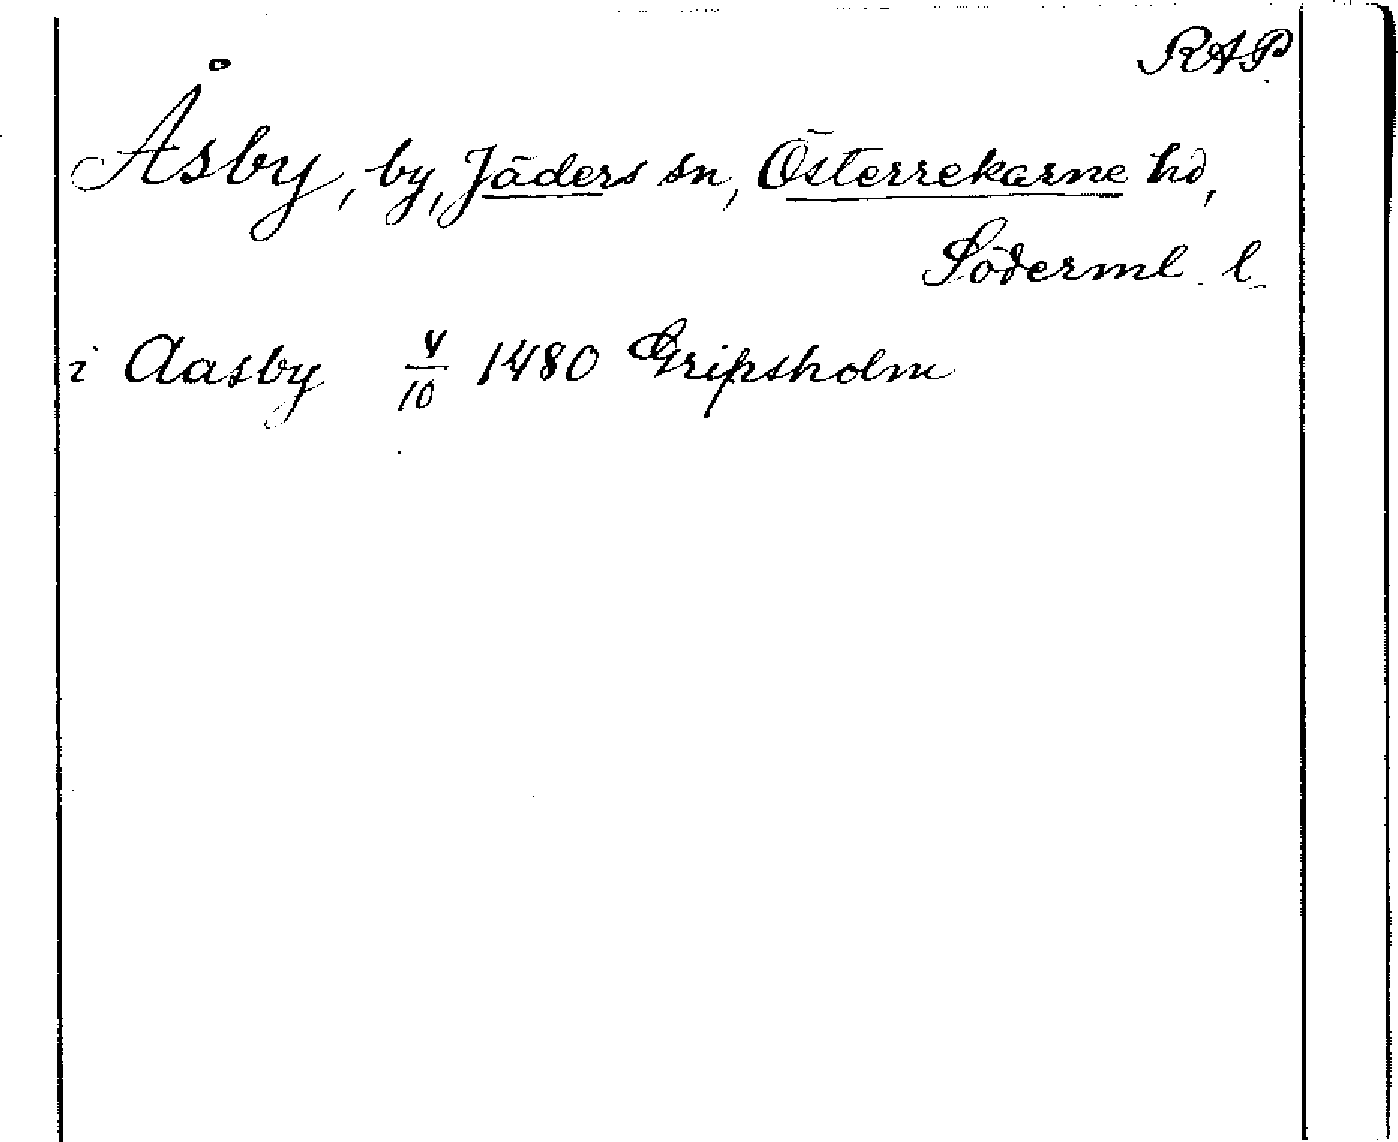 RAP
Åsby, by, Jäders sn, Österrekarne hd,
Söderml. l.
i Aasby 4/10 1480 Gripsholm